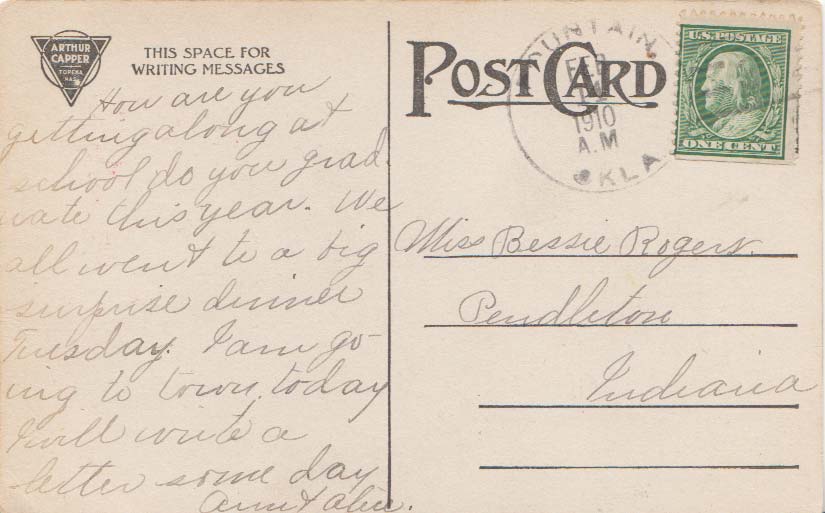 ARTHUR
CAPPER
TOPEKA
KAS.
THIS SPACE FOR
WRITING MESSAGES
How are you
getting along at
school do you grad
uate this year. We
all went to a big
surprise dinner
Tuesday. I am go-
ing to town today
I will write a
letter some day
Aunt
POST CARD
OUNTAIN
FEB
1910
A.M
OKLA
U.S. POSTAGE
ONE CENT
Miss Bessie Rogers.
Pendleton
Indiana